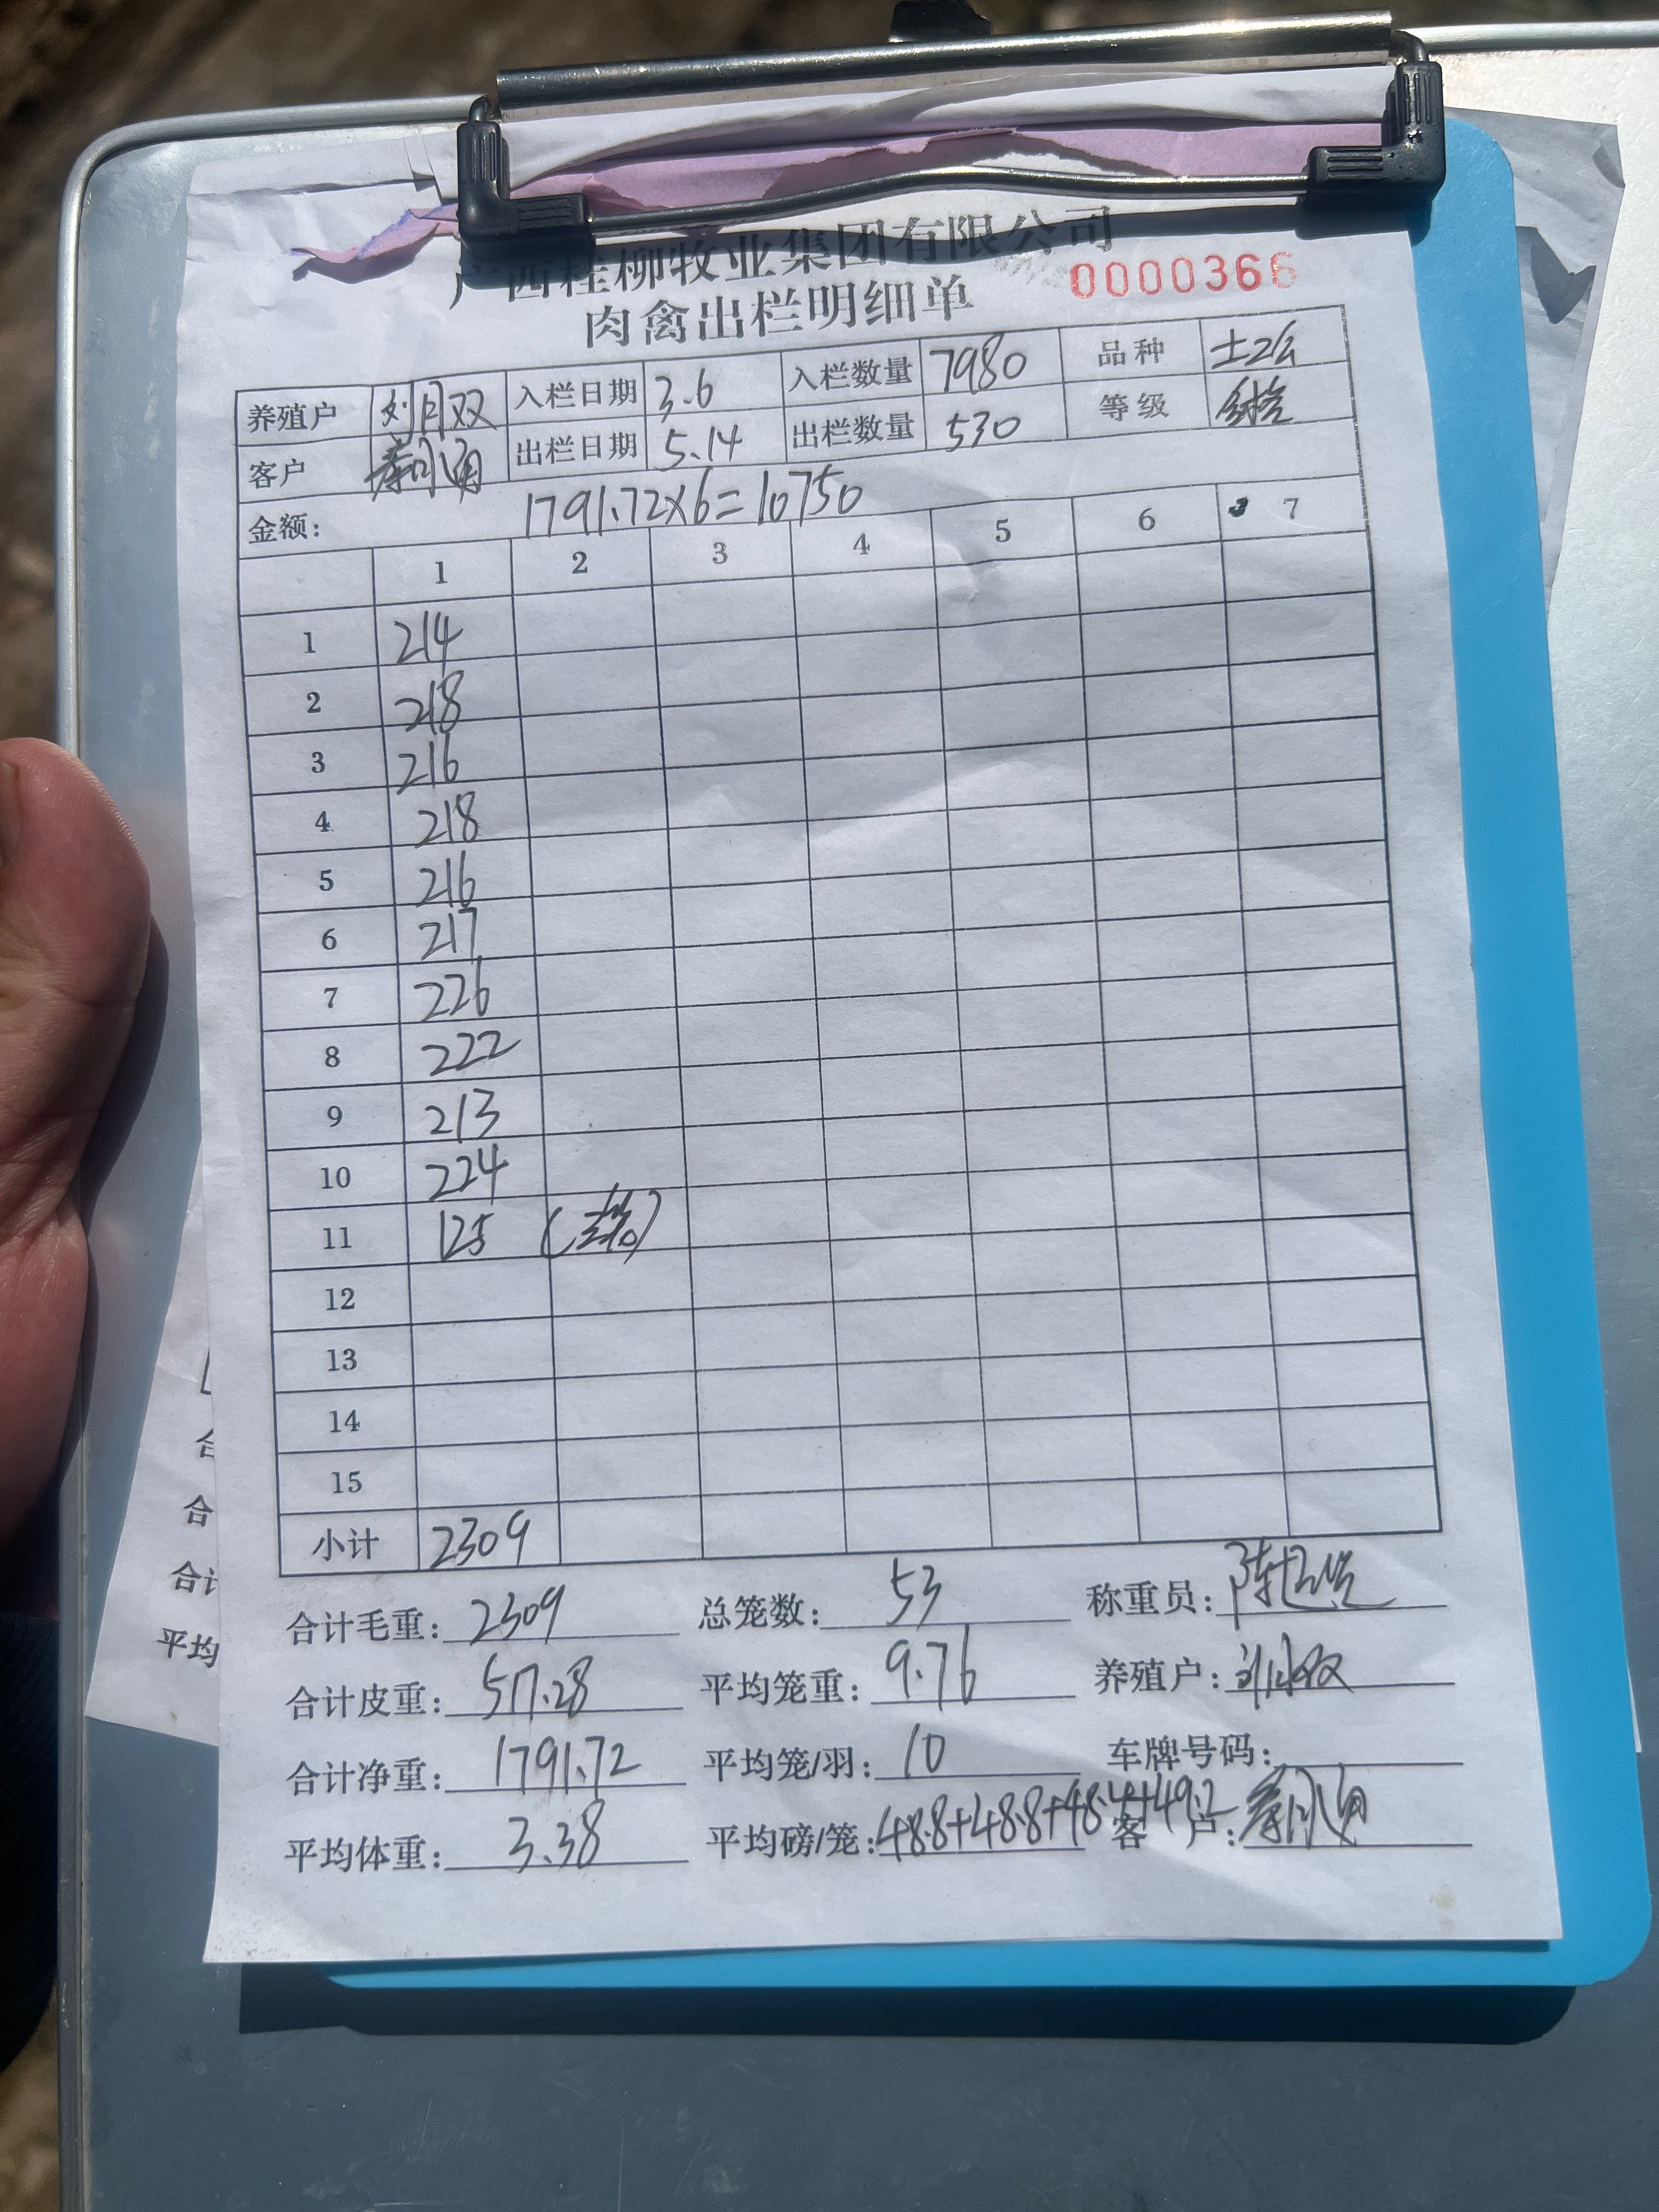 广西桂柳牧业集团有限公司
肉禽出栏明细单 0000366
养殖户 刘月双 入栏日期 3.6 入栏数量 7980 品种 土2公
客户 出栏日期 5.14 出栏数量 530 等级
金额: 1791.72×6=10750
1 2 3 4 5 6 7
1 214
2 218
3 216
4 218
5 216
6 217
7 226
8 222
9 213
10 224
11 125 (三笼)
12
13
14
15
小计 2309
合计毛重: 2309 总笼数: 53 称重员:
合计皮重: 517.28 平均笼重: 9.76 养殖户: 刘月双
合计净重: 1791.72 平均笼/羽: 10 车牌号码:
平均体重: 3.38 平均磅/笼: 48.8+48.8+48.4+49.2 客 户:
合
合
合计
平均